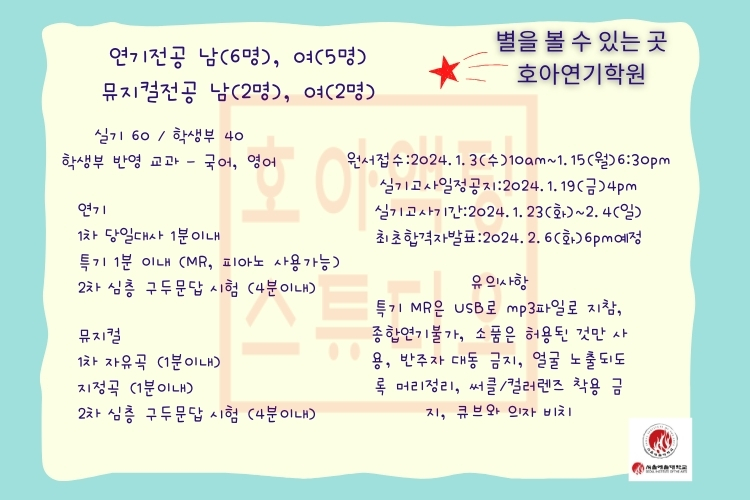 별을 볼 수 있는 곳
호아연기학원
연기전공 남(6명), 여(5명)
뮤지컬전공 남(2명), 여(2명)
실기 60 / 학생부 40
학생부 반영 교과 - 국어, 영어
연기
1차 당일대사 1분이내
특기 1분 이내 (MR, 피아노 사용가능)
2차 심층 구두문답 시험 (4분이내)
뮤지컬
1차 자유곡 (1분이내)
지정곡 (1분이내)
2차 심층 구두문답 시험 (4분이내)
원서접수:2024.1.3(수)10am~1.15(월)6:30pm
실기고사일정공지:2024.1.19(금)4pm
실기고사기간:2024.1.23(화)~2.4(일)
최초합격자발표:2024.2.6(화)6pm예정
유의사항
특기 MR은 USB로 mp3파일로 지참,
종합연기불가, 소품은 허용된 것만 사
용, 반주자 대동 금지, 얼굴 노출되도
록 머리정리, 써클/컬러렌즈 착용 금
지, 큐브와 의자 비치
호아액팅
스튜디오
서울예술대학교
SEOUL INSTITUTE OF THE ARTS